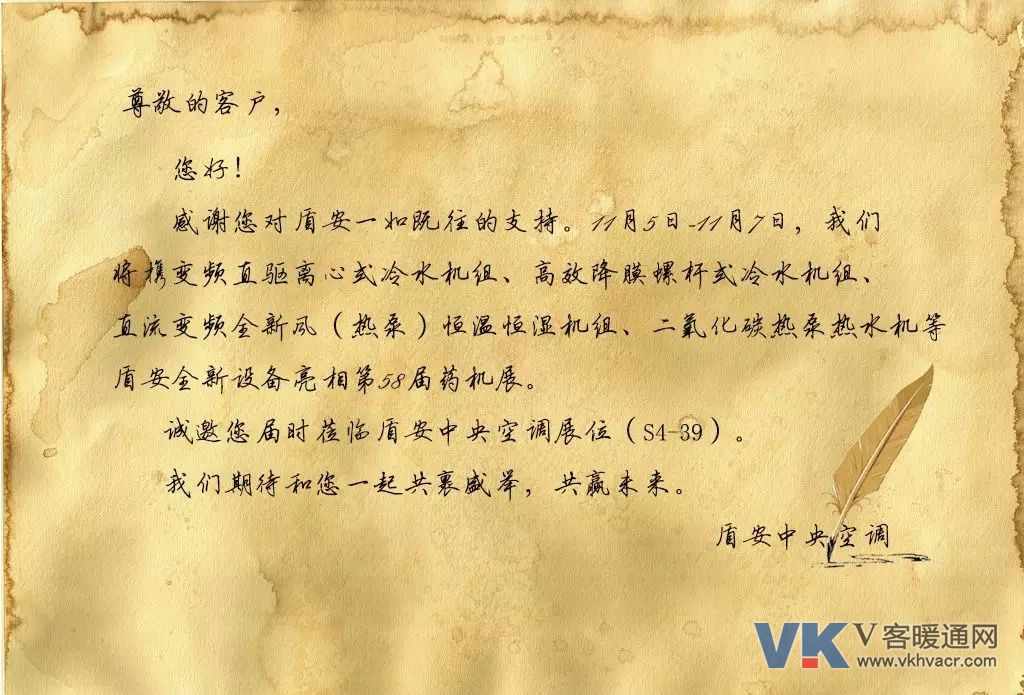 尊敬的客户，
您好！
感谢您对盾安一如既往的支持。11月5日-11月7日，我们
将携变频直驱离心式冷水机组、高效降膜螺杆式冷水机组、
直流变频全新风（热泵）恒温恒湿机组、二氧化碳热泵热水机等
盾安全新设备亮相第58届药机展。
诚邀您届时莅临盾安中央空调展位（S4-39）。
我们期待和您一起共襄盛举，共赢未来。
盾安中央空调
VK V客暖通网
www.vkhvacr.com